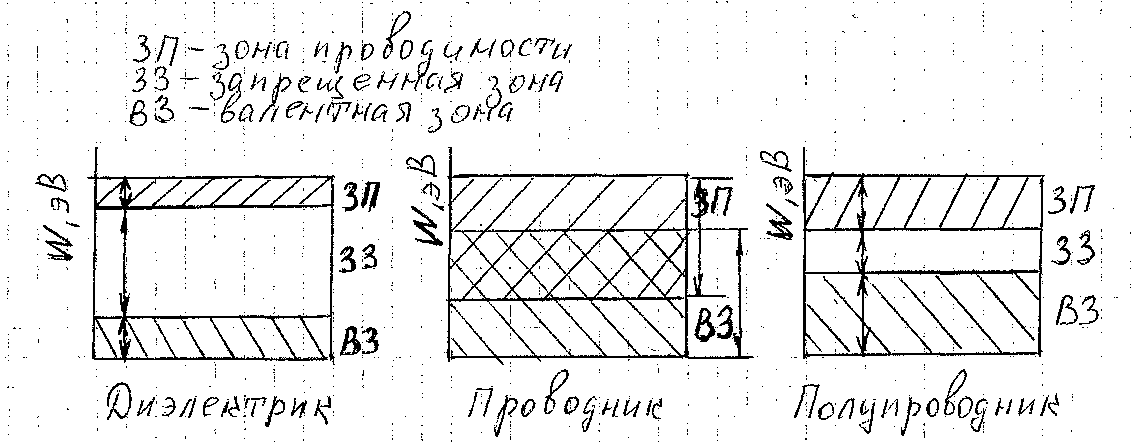 ЗП – зона проводимости
ЗЗ – запрещенная зона
ВЗ – валентная зона
W, эВ
ЗП
ЗЗ
ВЗ
Диэлектрик
W, эВ
ЗП
ВЗ
Проводник
W, эВ
ЗП
ЗЗ
ВЗ
Полупроводник